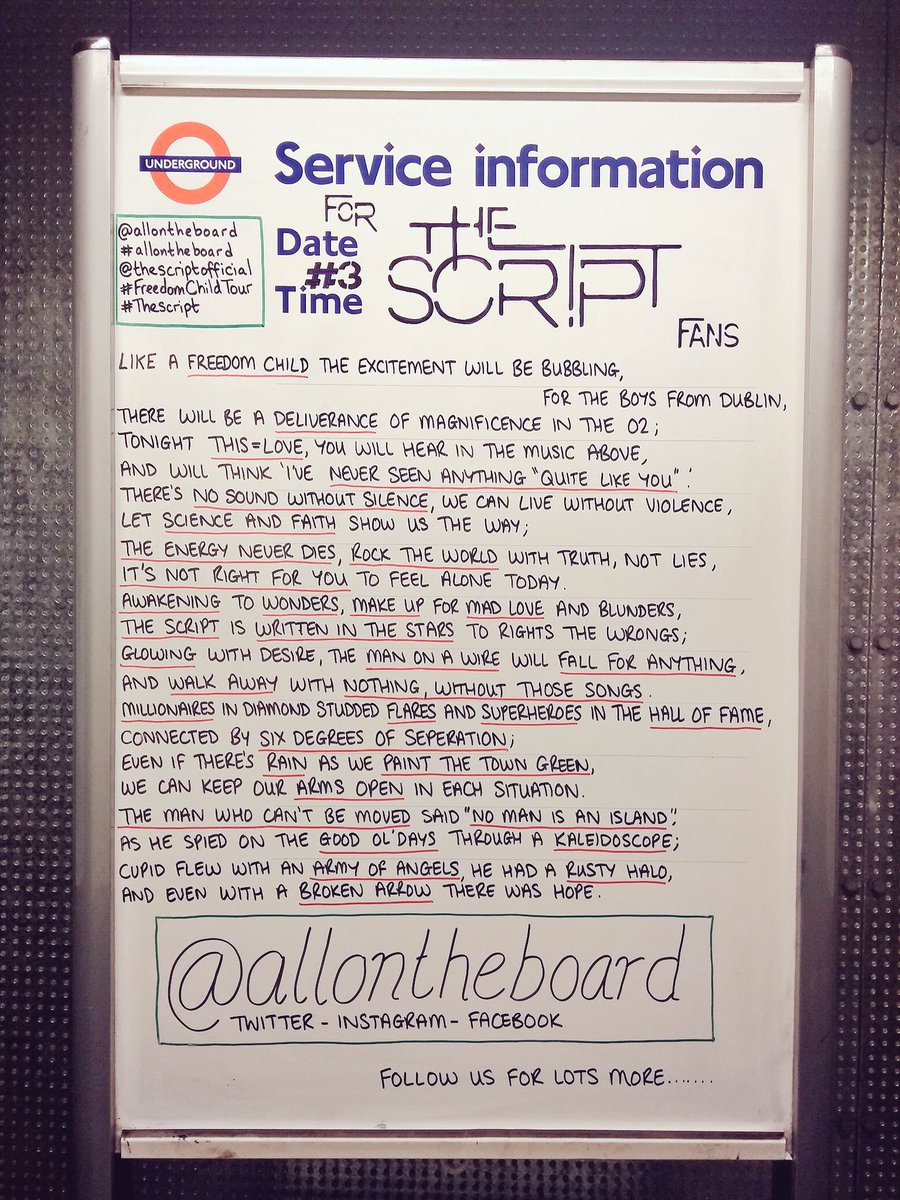 UNDERGROUND
Service information
@allontheboard
#allontheboard
@thescriptofficial
#FreedomChildTour
#Thescript
FOR
Date
#3
Time
THE
SCRIPT
FANS
LIKE A FREEDOM CHILD THE EXCITEMENT WILL BE BUBBLING,
FOR THE BOYS FROM DUBLIN,
THERE WILL BE A DELIVERANCE OF MAGNIFICENCE IN THE O2;
TONIGHT THIS=LOVE, YOU WILL HEAR IN THE MUSIC ABOVE,
AND WILL THINK 'I'VE NEVER SEEN ANYTHING "QUITE LIKE YOU".'
THERE'S NO SOUND WITHOUT SILENCE, WE CAN LIVE WITHOUT VIOLENCE,
LET SCIENCE AND FAITH SHOW US THE WAY;
THE ENERGY NEVER DIES, ROCK THE WORLD WITH TRUTH, NOT LIES,
IT'S NOT RIGHT FOR YOU TO FEEL ALONE TODAY.
AWAKENING TO WONDERS, MAKE UP FOR MAD LOVE AND BLUNDERS,
THE SCRIPT IS WRITTEN IN THE STARS TO RIGHTS THE WRONGS;
GLOWING WITH DESIRE, THE MAN ON A WIRE WILL FALL FOR ANYTHING,
AND WALK AWAY WITH NOTHING, WITHOUT THOSE SONGS.
MILLIONAIRES IN DIAMOND STUDDED FLARES AND SUPERHEROES IN THE HALL OF FAME,
CONNECTED BY SIX DEGREES OF SEPERATION;
EVEN IF THERE'S RAIN AS WE PAINT THE TOWN GREEN,
WE CAN KEEP OUR ARMS OPEN IN EACH SITUATION.
THE MAN WHO CAN'T BE MOVED SAID "NO MAN IS AN ISLAND".
AS HE SPIED ON THE GOOD OL' DAYS THROUGH A KALEIDOSCOPE;
CUPID FLEW WITH AN ARMY OF ANGELS, HE HAD A RUSTY HALO,
AND EVEN WITH A BROKEN ARROW THERE WAS HOPE.
@allontheboard
TWITTER - INSTAGRAM - FACEBOOK
FOLLOW US FOR LOTS MORE.......